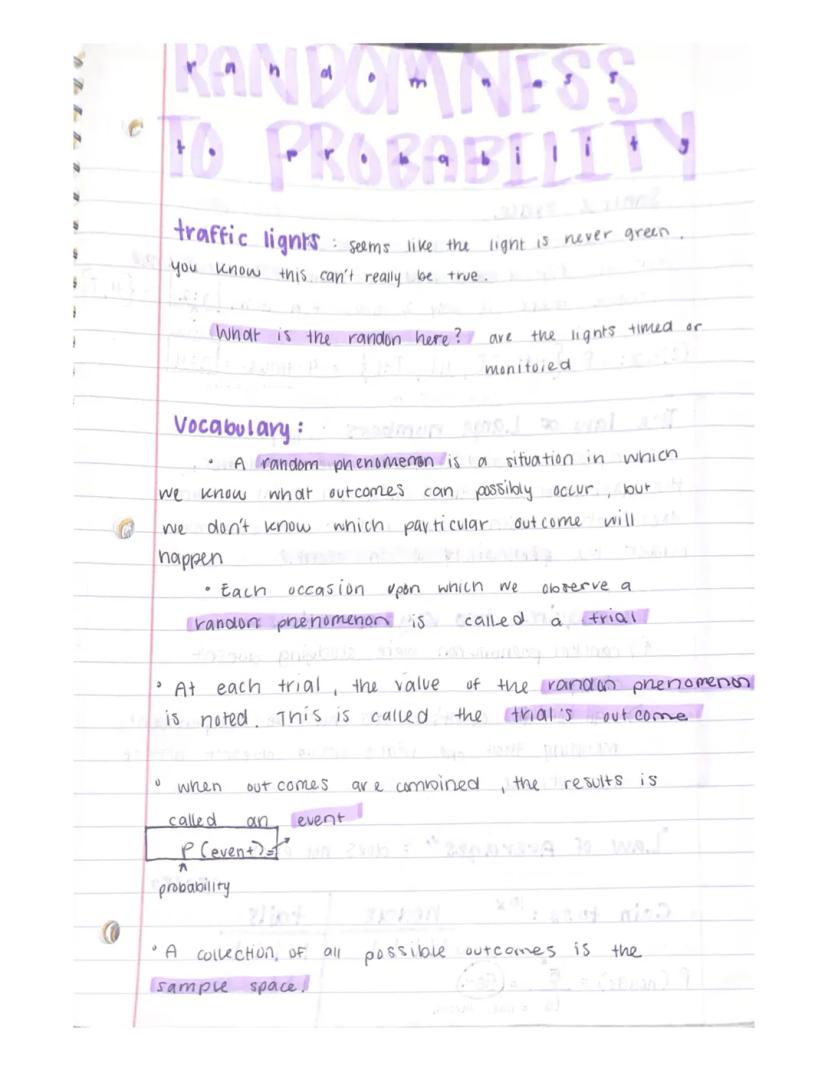 RANDOMNESS
randomness
TO PROBABILITY
to probability
traffic lignts : seems like the light is never green.
you know this can't really be true.
What is the randon here? are the lights timed or
monitored
Vocabulary:
• A random phenomenon is a situation in which
we know what outcomes can possibly occur, but
we don't know which particular outcome will
happen
• Each occasion upon which we observe a
randon phenomenon is called a trial
• At each trial, the value of the randon phenomenon
is noted. This is called the trial's outcome
• when outcomes are combined, the results is
called an event
P(event)=
probability
• A collection of all possible outcomes is the
sample space.